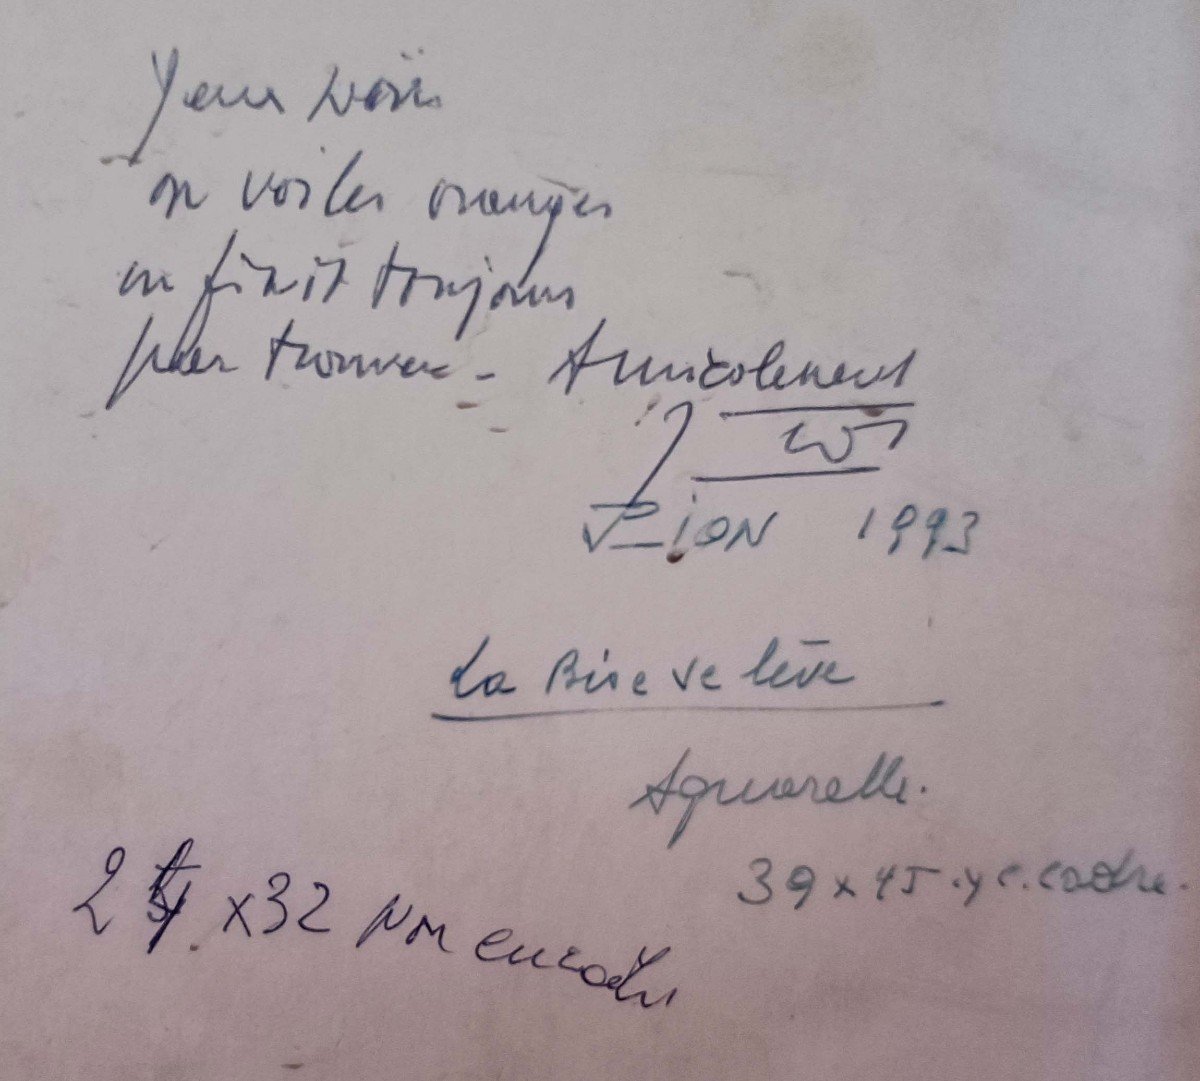 on voiles oranges
on finit toujours
par trouver - Amicalement
1993
La Bise se lève
Aquarelle.
39 x 45 . y c. cadre.
2 x 32 non encadré